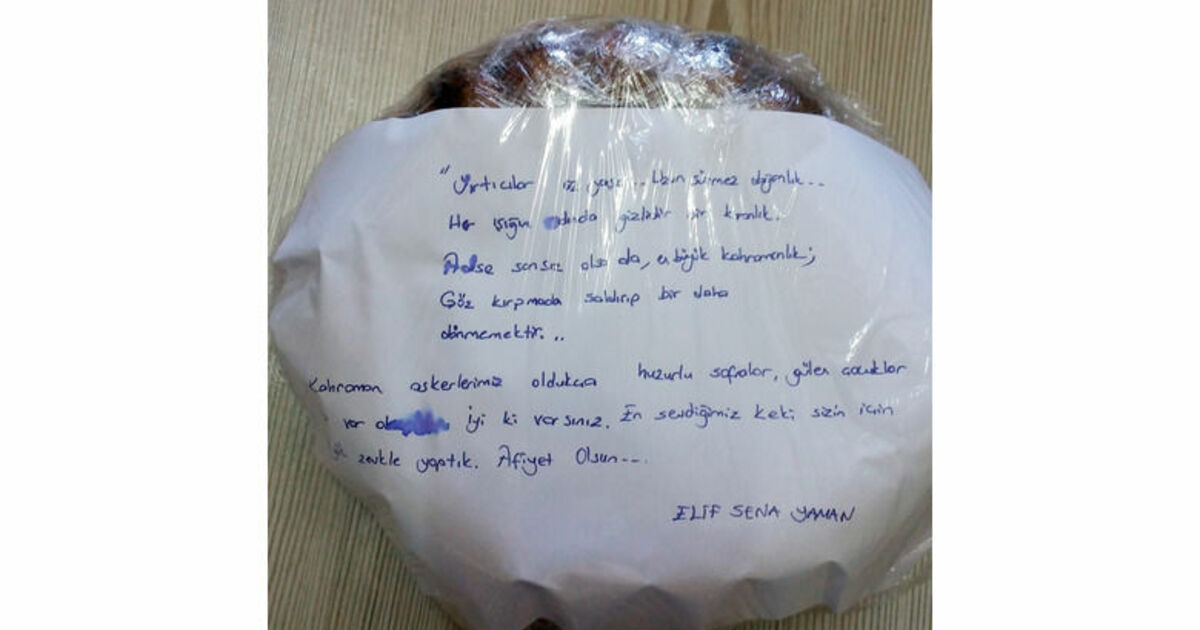 "Yırtıcılar az yaşar.. Uzun sürmez doğanlık..
Her ışığın ardında gizlidir bir kranlık.
Adse sansız olsa da, en büyük kahramanlık;
Göz kırpmada saldırıp bir daha
dönmemektir...
Kahraman askerlerimiz oldukca huzurlu sofralar, gülen çocuklar
var İyi ki varsınız. En sevdiğimiz keki sizin için
zevkle yaptık. Afiyet Olsun---.
ELİF SENA YAMAN